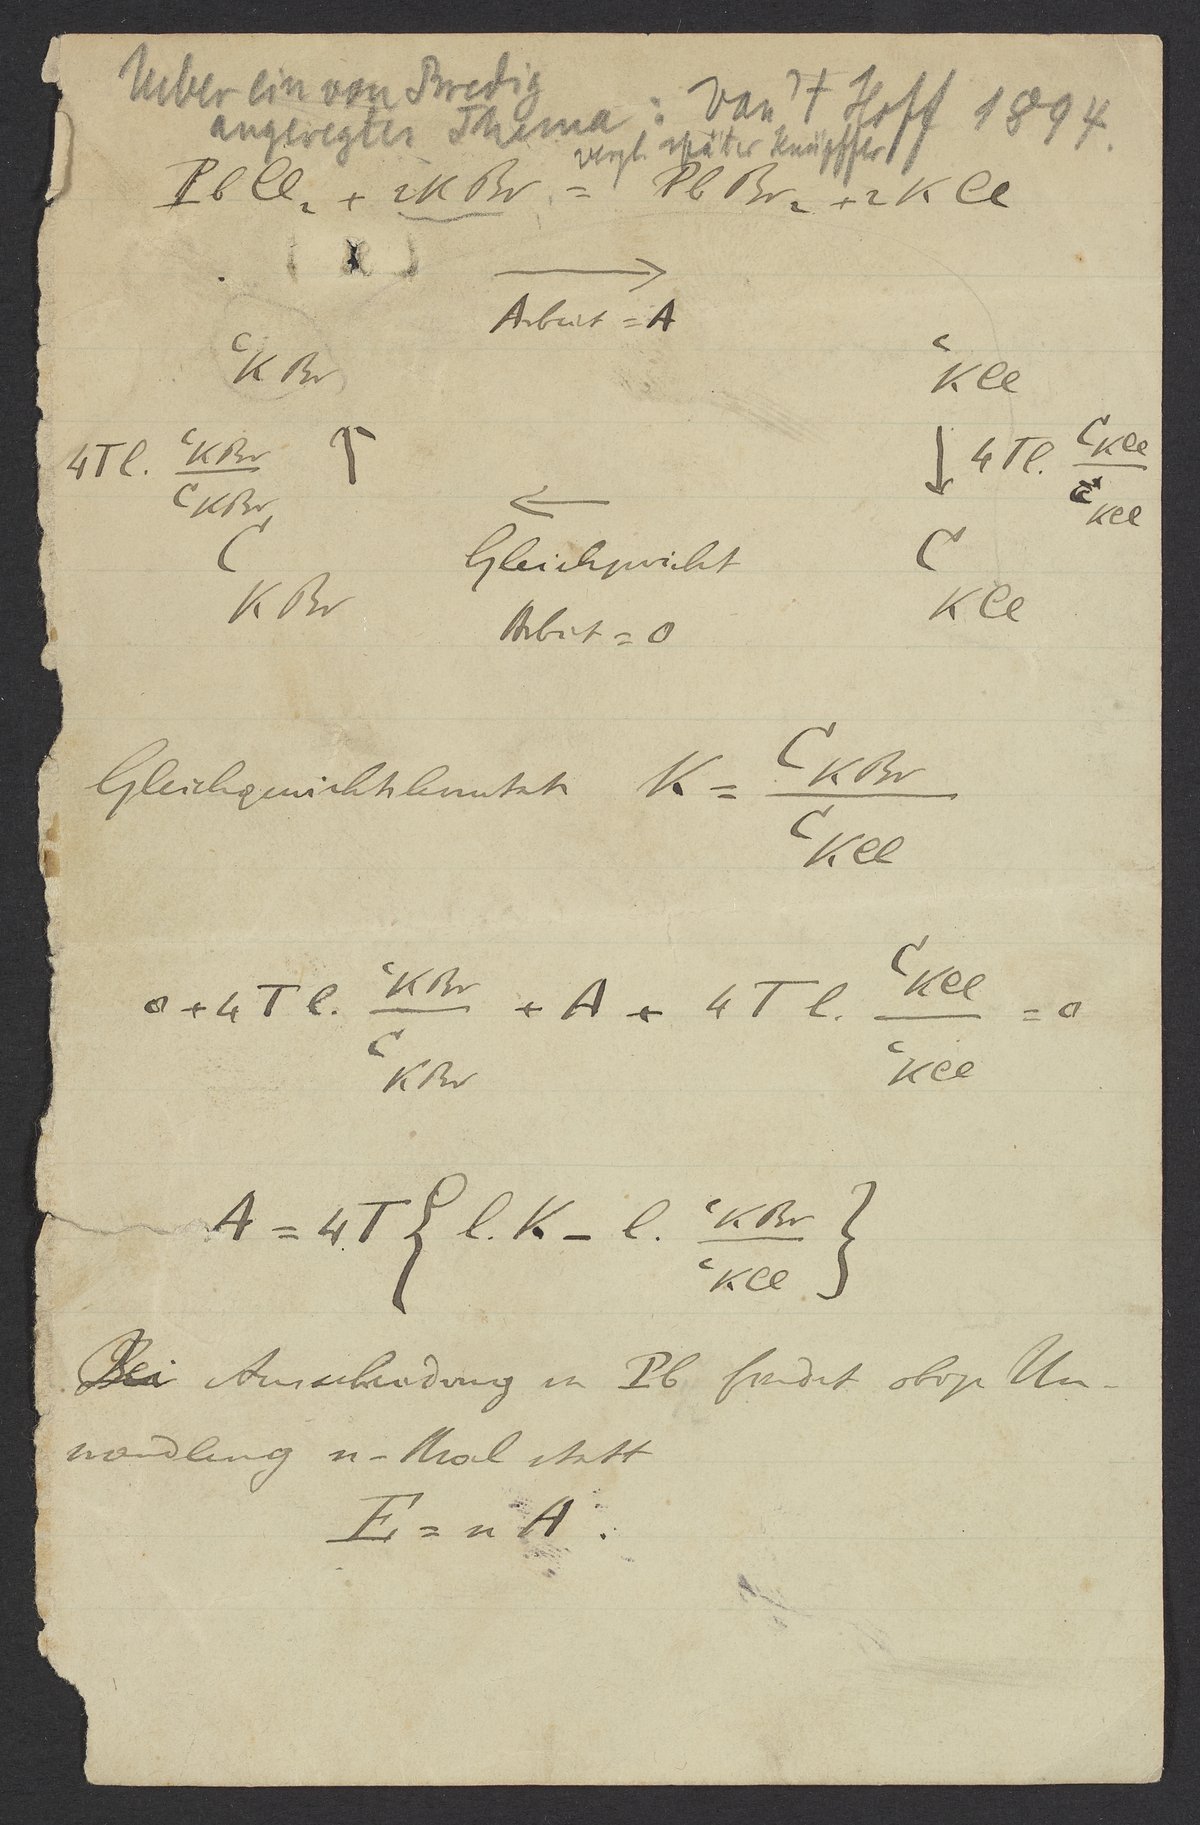 Ueber ein von Bredig
angeregtes Thema : Van't Hoff 1894.
vergl. später Knüpffer
PbCl₂ + 2KBr = PbBr₂ + 2KCl
→
Arbeit = A
c KBr
c KCl
4Tl. c KBr / C KBr ↑
↓ 4Tl. C KCl / c KCl
←
C KBr
Gleichgewicht
C KCl
Arbeit = 0
Gleichgewichtskonstante K = C KBr / C KCl
0 + 4Tl. c KBr / C KBr + A + 4Tl. C KCl / c KCl = 0
A = 4T { l. K – l. c KBr / c KCl }
Bei Ausscheidung n Pb findet obige Um-
wandlung n-Mal statt
E = n A .